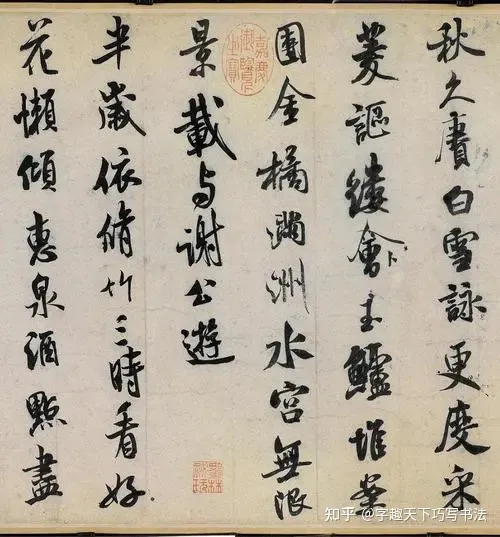 秋久賡白雪詠更度采
菱謳縷會玉鱸堆案
團金橘滿洲水宮無限
景載与謝公遊
半歲依脩竹三時看好
花懶傾惠泉酒點盡
嘉慶御覽之寶
知乎 @字趣天下巧写书法